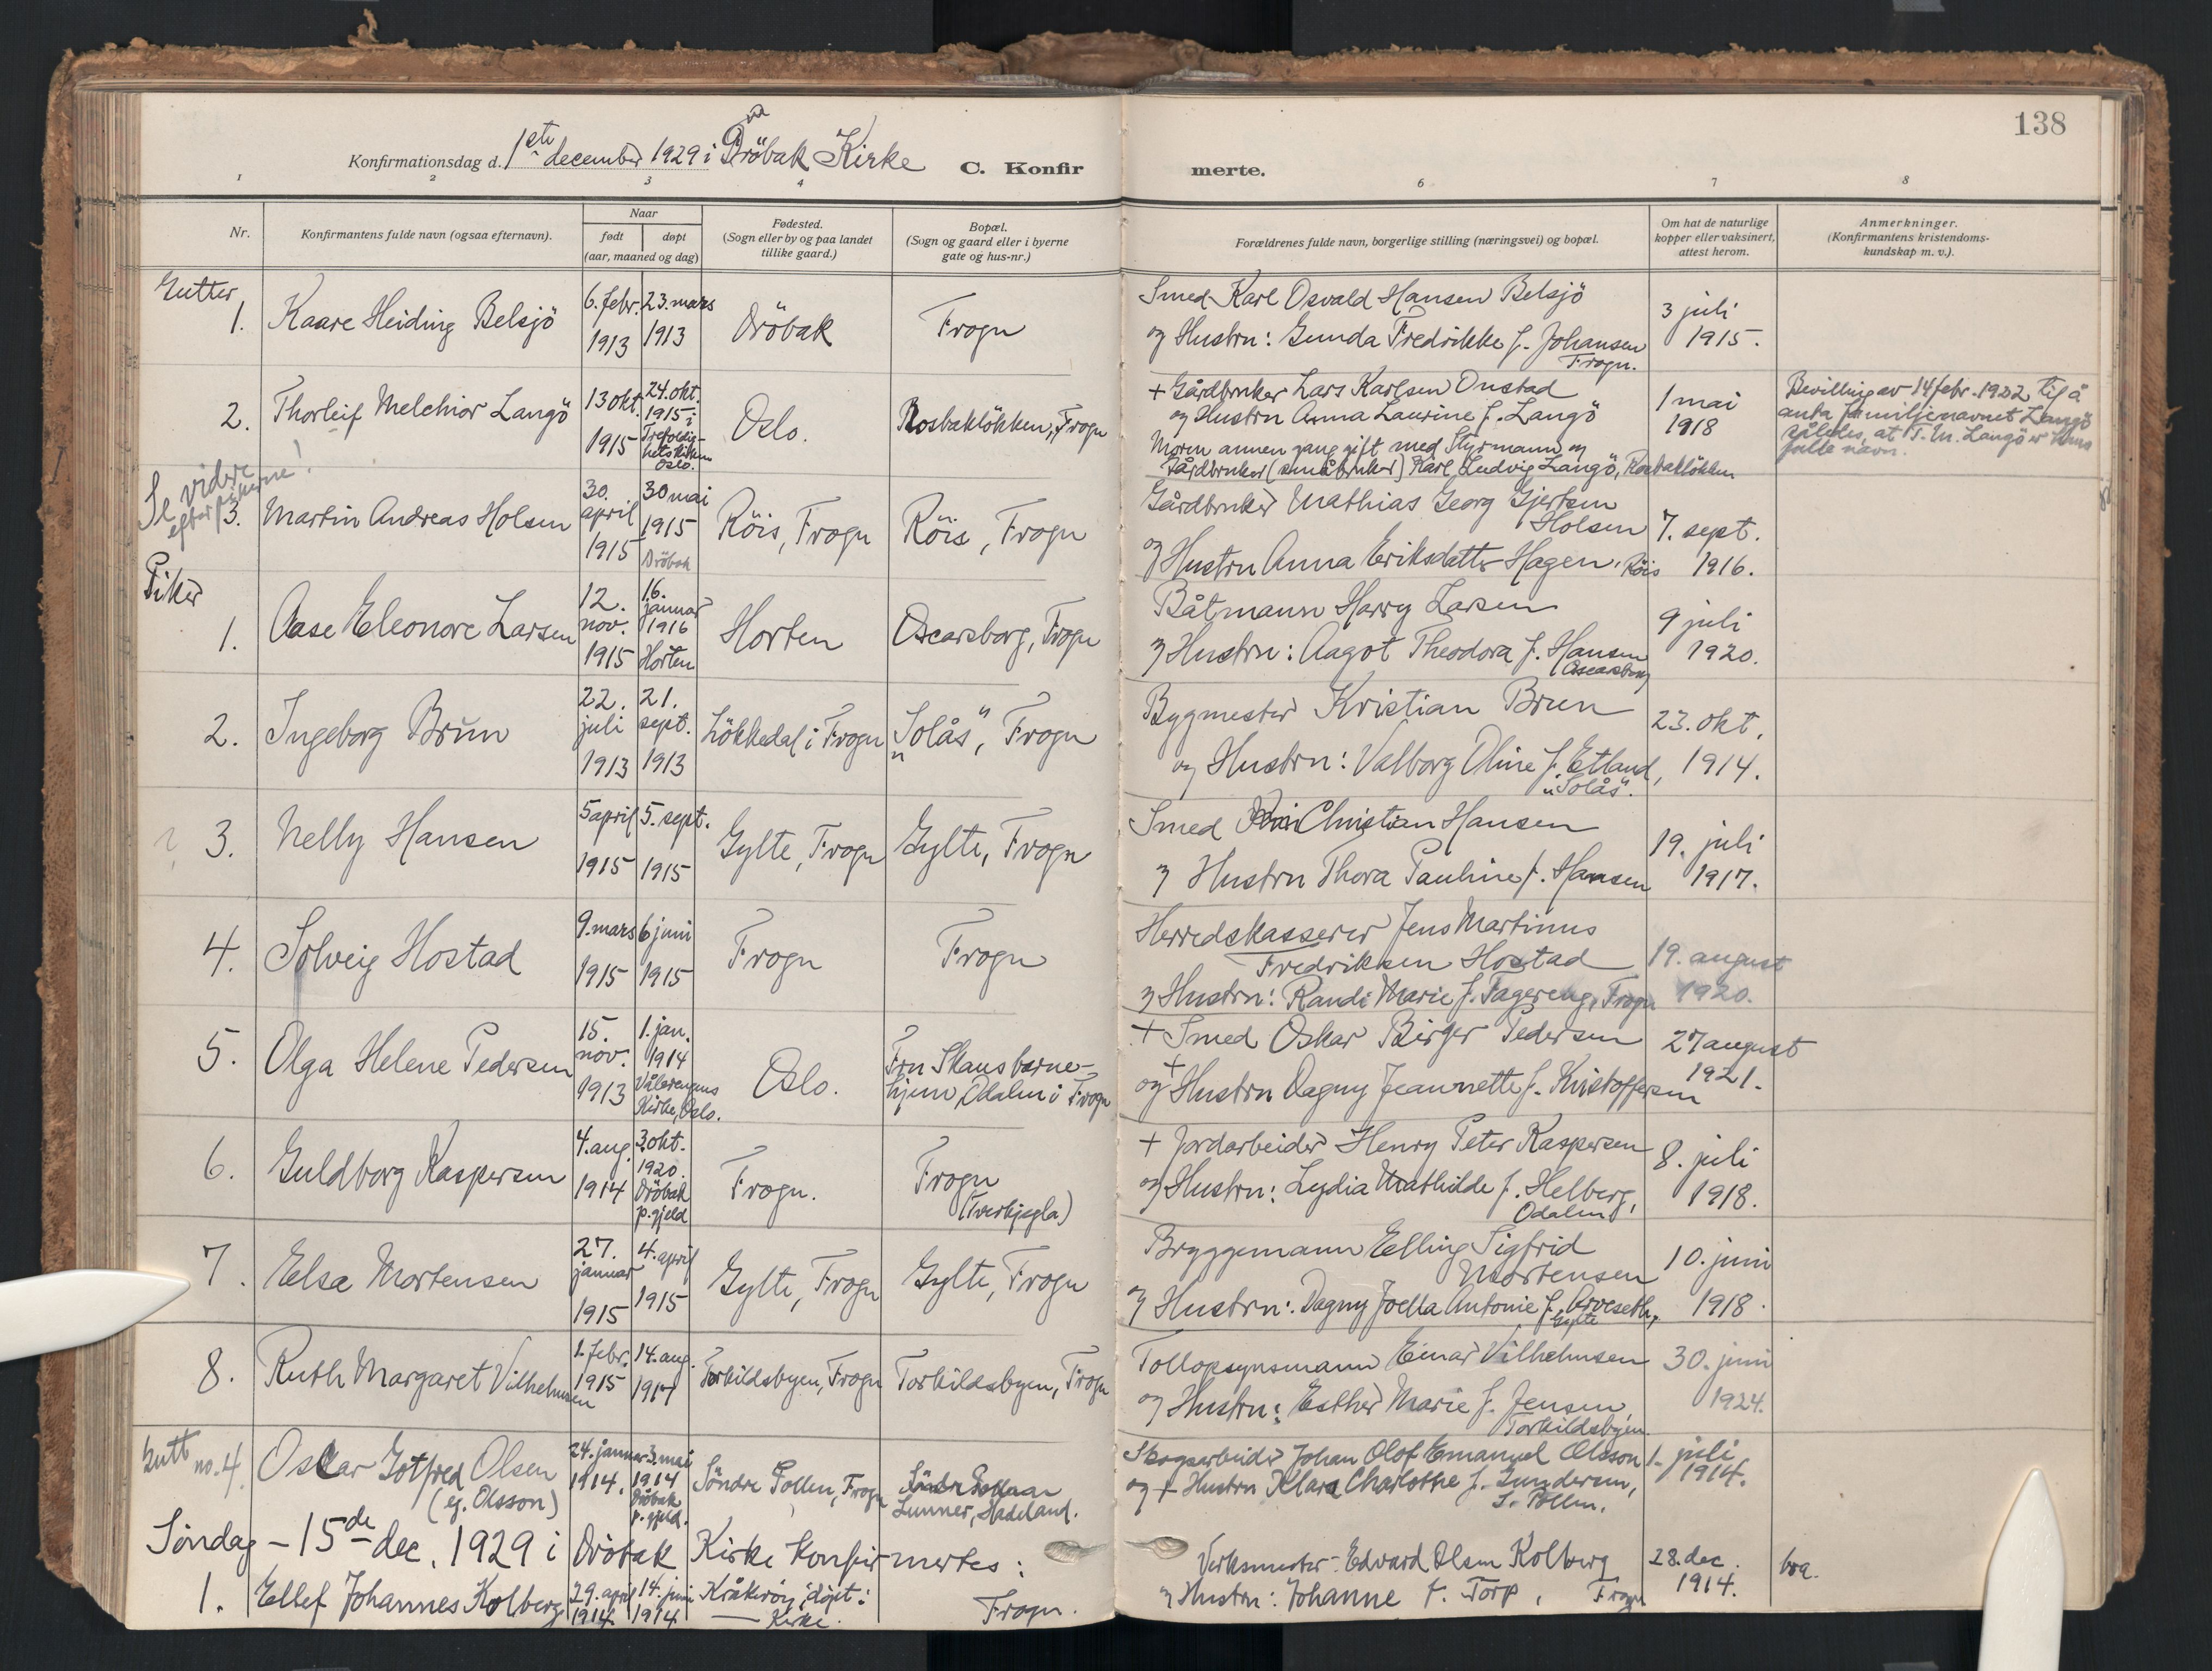 138
Konfirmationsdag d. 1ste december 1929 i Dröbak Kirke C. Konfirmerte.
1 2 3 4 6 7 8
Nr.
Konfirmantens fulde navn (ogsaa efternavn).
Naar
født døpt
(aar, maaned og dag)
Fødested.
(Sogn eller by og paa landet
tillike gaard.)
Bopæl.
(Sogn og gaard eller i byerne
gate og hus-nr.)
Forældrenes fulde navn, borgerlige stilling (næringsvei) og bopæl.
Om hat de naturlige
kopper eller vaksinert,
attest herom.
Anmerkninger.
(Konfirmantens kristendoms-
kundskap m. v.).
Gutter
1. Kaare Heiding Belsjö
6. febr. 1913
23. mars 1913
Dröbak
Frogn
Smed Karl Osvald Hansen Belsjö
og Hustru: Gunda Fredrikke f. Johansen
Frogn.
3 juli
1915.
2. Thorleif Melchior Langö
13 okt. 1915
24. okt.
1915 i
Trefoldig-
hetskirken
Oslo.
Oslo.
Rosbaklökken, Frogn
+ Gårdbruker Lars Karlsen Onstad
og Hustru Anna Laurine f. Langö
Moren annen gang gift med Styrmann og
Gårdbruker (småbruker) Karl Ludvig Langö, Rosbaklökken
1 mai
1918
Bevilling av 14 febr. 1922 til å
anta familjenavnet Langö
således, at T. M. Langö er hans
fulde navn.
Se videre
efter pikerne!
3. Martin Andreas Holsen
30.
april
1915
30 mai
1915
Dröbak
Röis, Frogn
Röis, Frogn
Gårdbruker Mathias Georg Gjertsen
Holsen
og Hustru Anna Eriksdatter Hagen, Röis
7. sept.
1916.
Piker
1. Aase Eleonore Larsen
12.
nov.
1915
16.
januar
1916
Horten
Horten
Oscarsborg, Frogn
Båtmann Harry Larsen
og Hustru: Aagot Theodora f. Hansen
(Oscarsborg)
9 juli
1920.
2. Ingeborg Brun
22.
juli
1913
21.
sept.
1913
Lökkedal i Frogn
"Solås", Frogn
Bygmester Kristian Brun
og Hustru: Valborg Oline f. Etland,
"Solås".
23. okt.
1914.
3. Nelly Hansen
5 april
1915
5. sept.
1915
Gylte, Frogn
Gylte, Frogn
Smed Christian Hansen
og Hustru Thora Pauline f. Hansen
19. juli
1917.
4. Solveig Hostad
9. mars
1915
6 juni
1915
Frogn
Frogn
Herredskasserer Jens Martinus
Fredriksen Hostad
og Hustru: Randi Marie f. Fagereng, Frogn
19. august
1920.
5. Olga Helene Pedersen
15.
nov.
1913
1. jan.
1914
Vålerengens
Kirke, Oslo.
Oslo.
Fru Skaus barne-
hjem, Odalen i Frogn
+ Smed Oskar Birger Pedersen
og + Hustru Dagny Jeannette f. Kristoffersen
27 august
1921.
6. Guldborg Kaspersen
4. aug.
1914
3 okt.
1920.
Dröbak
p.gjeld
Frogn.
Frogn
+ Jordarbeider Henry Peter Kaspersen
og Hustru: Lydia Mathilde f. Helberg,
Odalen
8. juli
1918.
7. Elsa Mortensen
27.
januar
1915
4. april
1915
Gylte, Frogn
Gylte, Frogn
Bryggemann Elling Sigfrid
Mortensen
og Hustru: Dagny Joella Antonie f. Arveseth,
Gylte
10. juni
1918.
8. Ruth Margaret Vilhelmsen
1. febr.
1915
14. aug.
1917
Torkildsbyen, Frogn
Torkildsbyen, Frogn
Tollopsynsmann Einar Vilhelmsen
og Hustru: Esther Marie f. Jensen
Torkildsbyen.
30. juni
1924.
Gutt no. 4. Oscar Gotfred Olsen
(eg. Olsson)
24. januar
1914.
3. mai
1914
Dröbak
p.gjeld.
Söndre Pollen, Frogn
Söndre Pollen
Lunner, Hadeland.
Skogsarbeider Johan Olof Emanuel Olsson
og + Hustru Klara Charlotte f. Gundersen,
S. Pollen.
1. juli
1914.
Söndag – 15de dec. 1929 i Dröbak Kirke konfirmertes:
1. Ellef Johannes Kolberg
29. april
1914
14. juni
1914
Kråkeröy, döpt i
— Kirke.
Frogn.
Verksmester Edvard Olsen Kolberg
og Hustru: Johanne f. Torp, Frogn
28. dec.
1914.
bra.